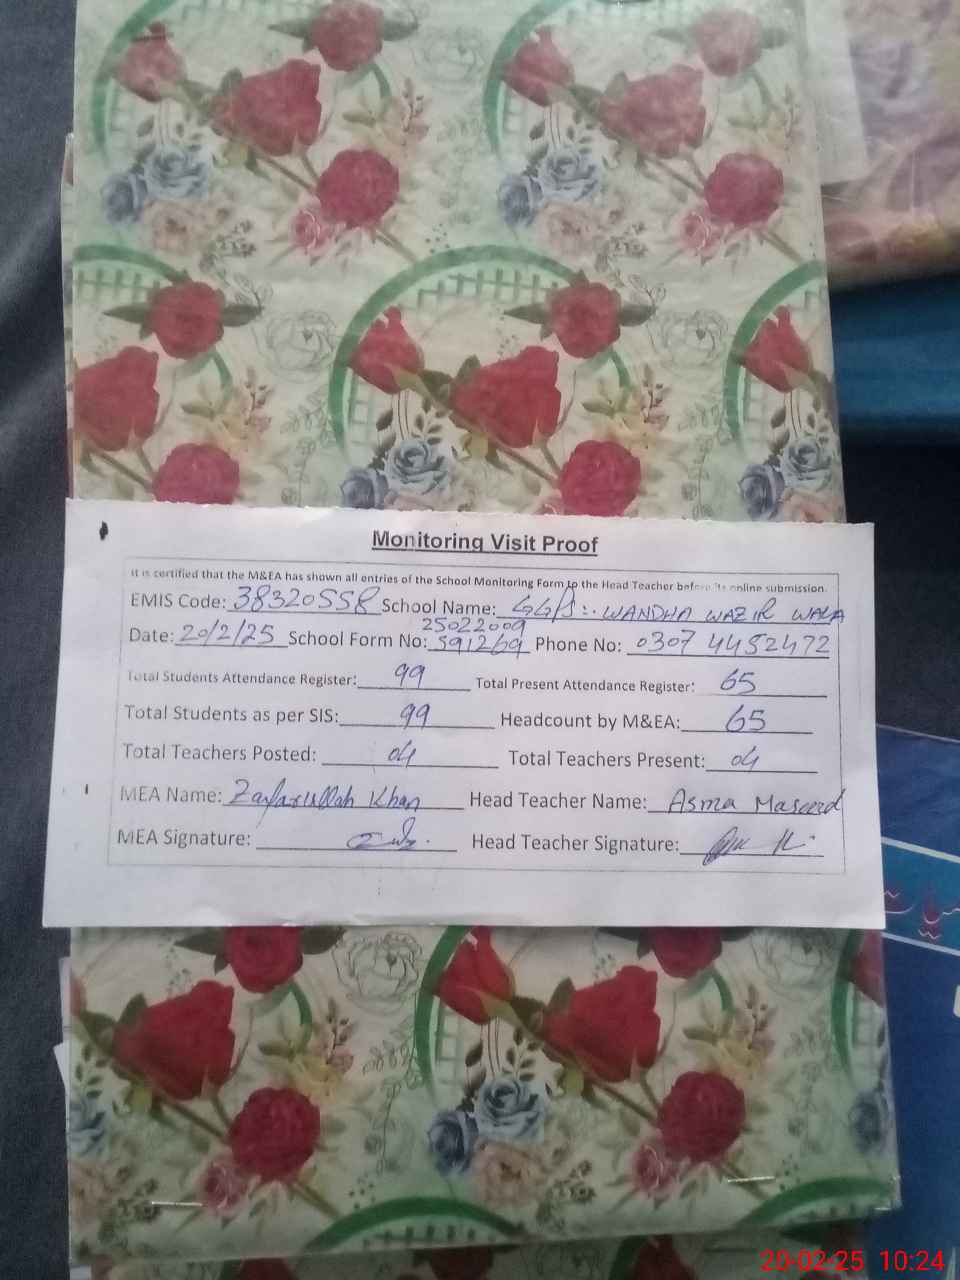 Monitoring Visit Proof
It is certified that the M&EA has shown all entries of the School Monitoring Form to the Head Teacher before its online submission.
EMIS Code: 38320558 School Name: GGPS: WANDHA WAZIR WALA
25022009
Date: 20/2/25 School Form No: 591269 Phone No: 0307 4452472
Total Students Attendance Register: 99 Total Present Attendance Register: 65
Total Students as per SIS: 99 Headcount by M&EA: 65
Total Teachers Posted: 04 Total Teachers Present: 04
MEA Name: Zafarullah Khan Head Teacher Name: Asma Maseed
MEA Signature: Head Teacher Signature:
20-02-25 10:24